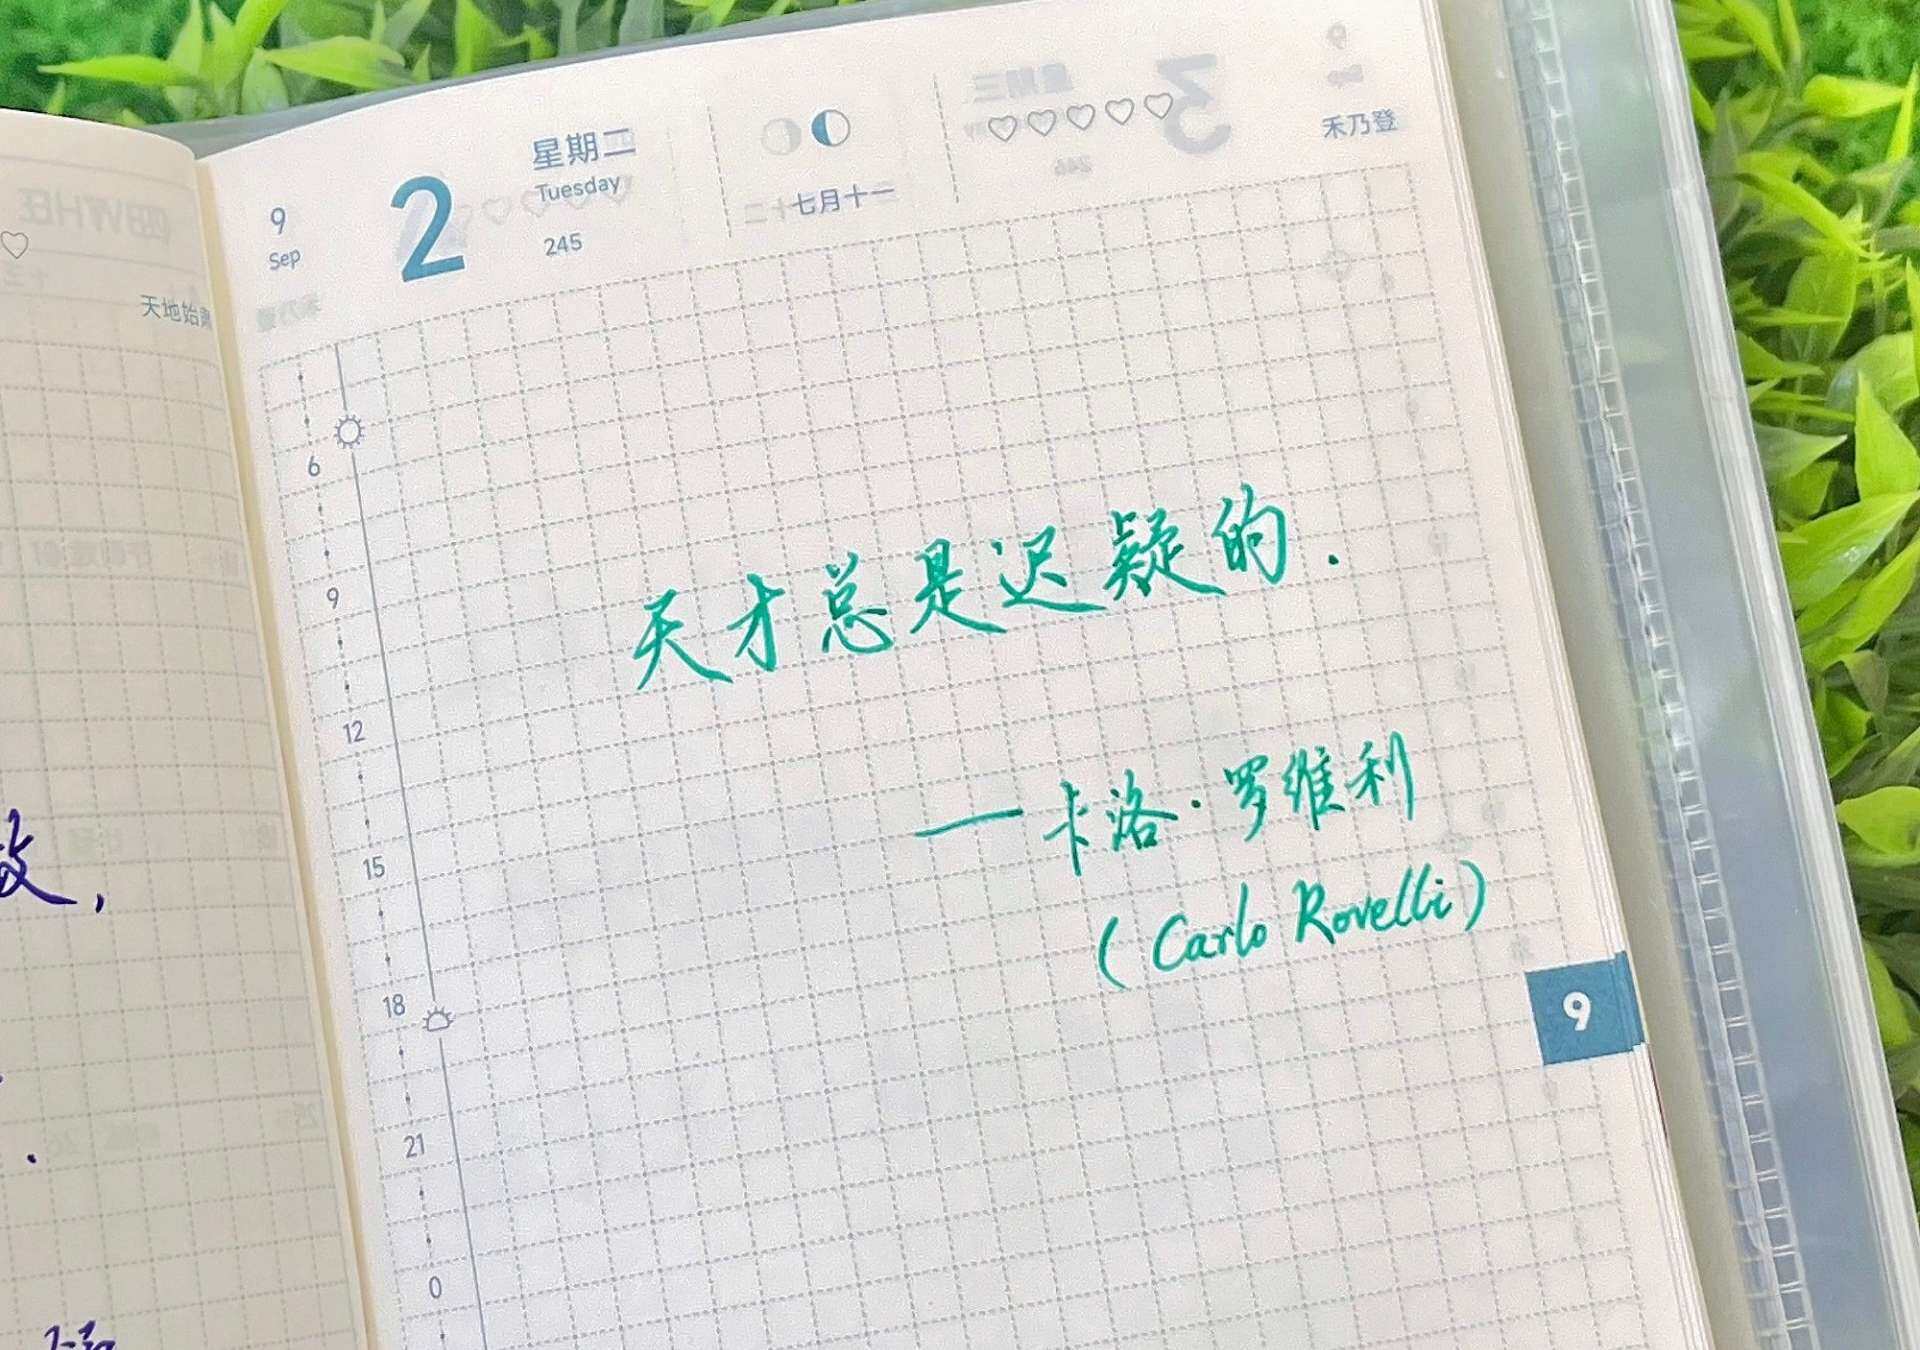 天地始肃
9
Sep
2
星期二
Tuesday
245
七月十一
禾乃登
6
9
12
15
18
21
0
天才总是迟疑的.
—卡洛·罗维利
(Carlo Rovelli)
9